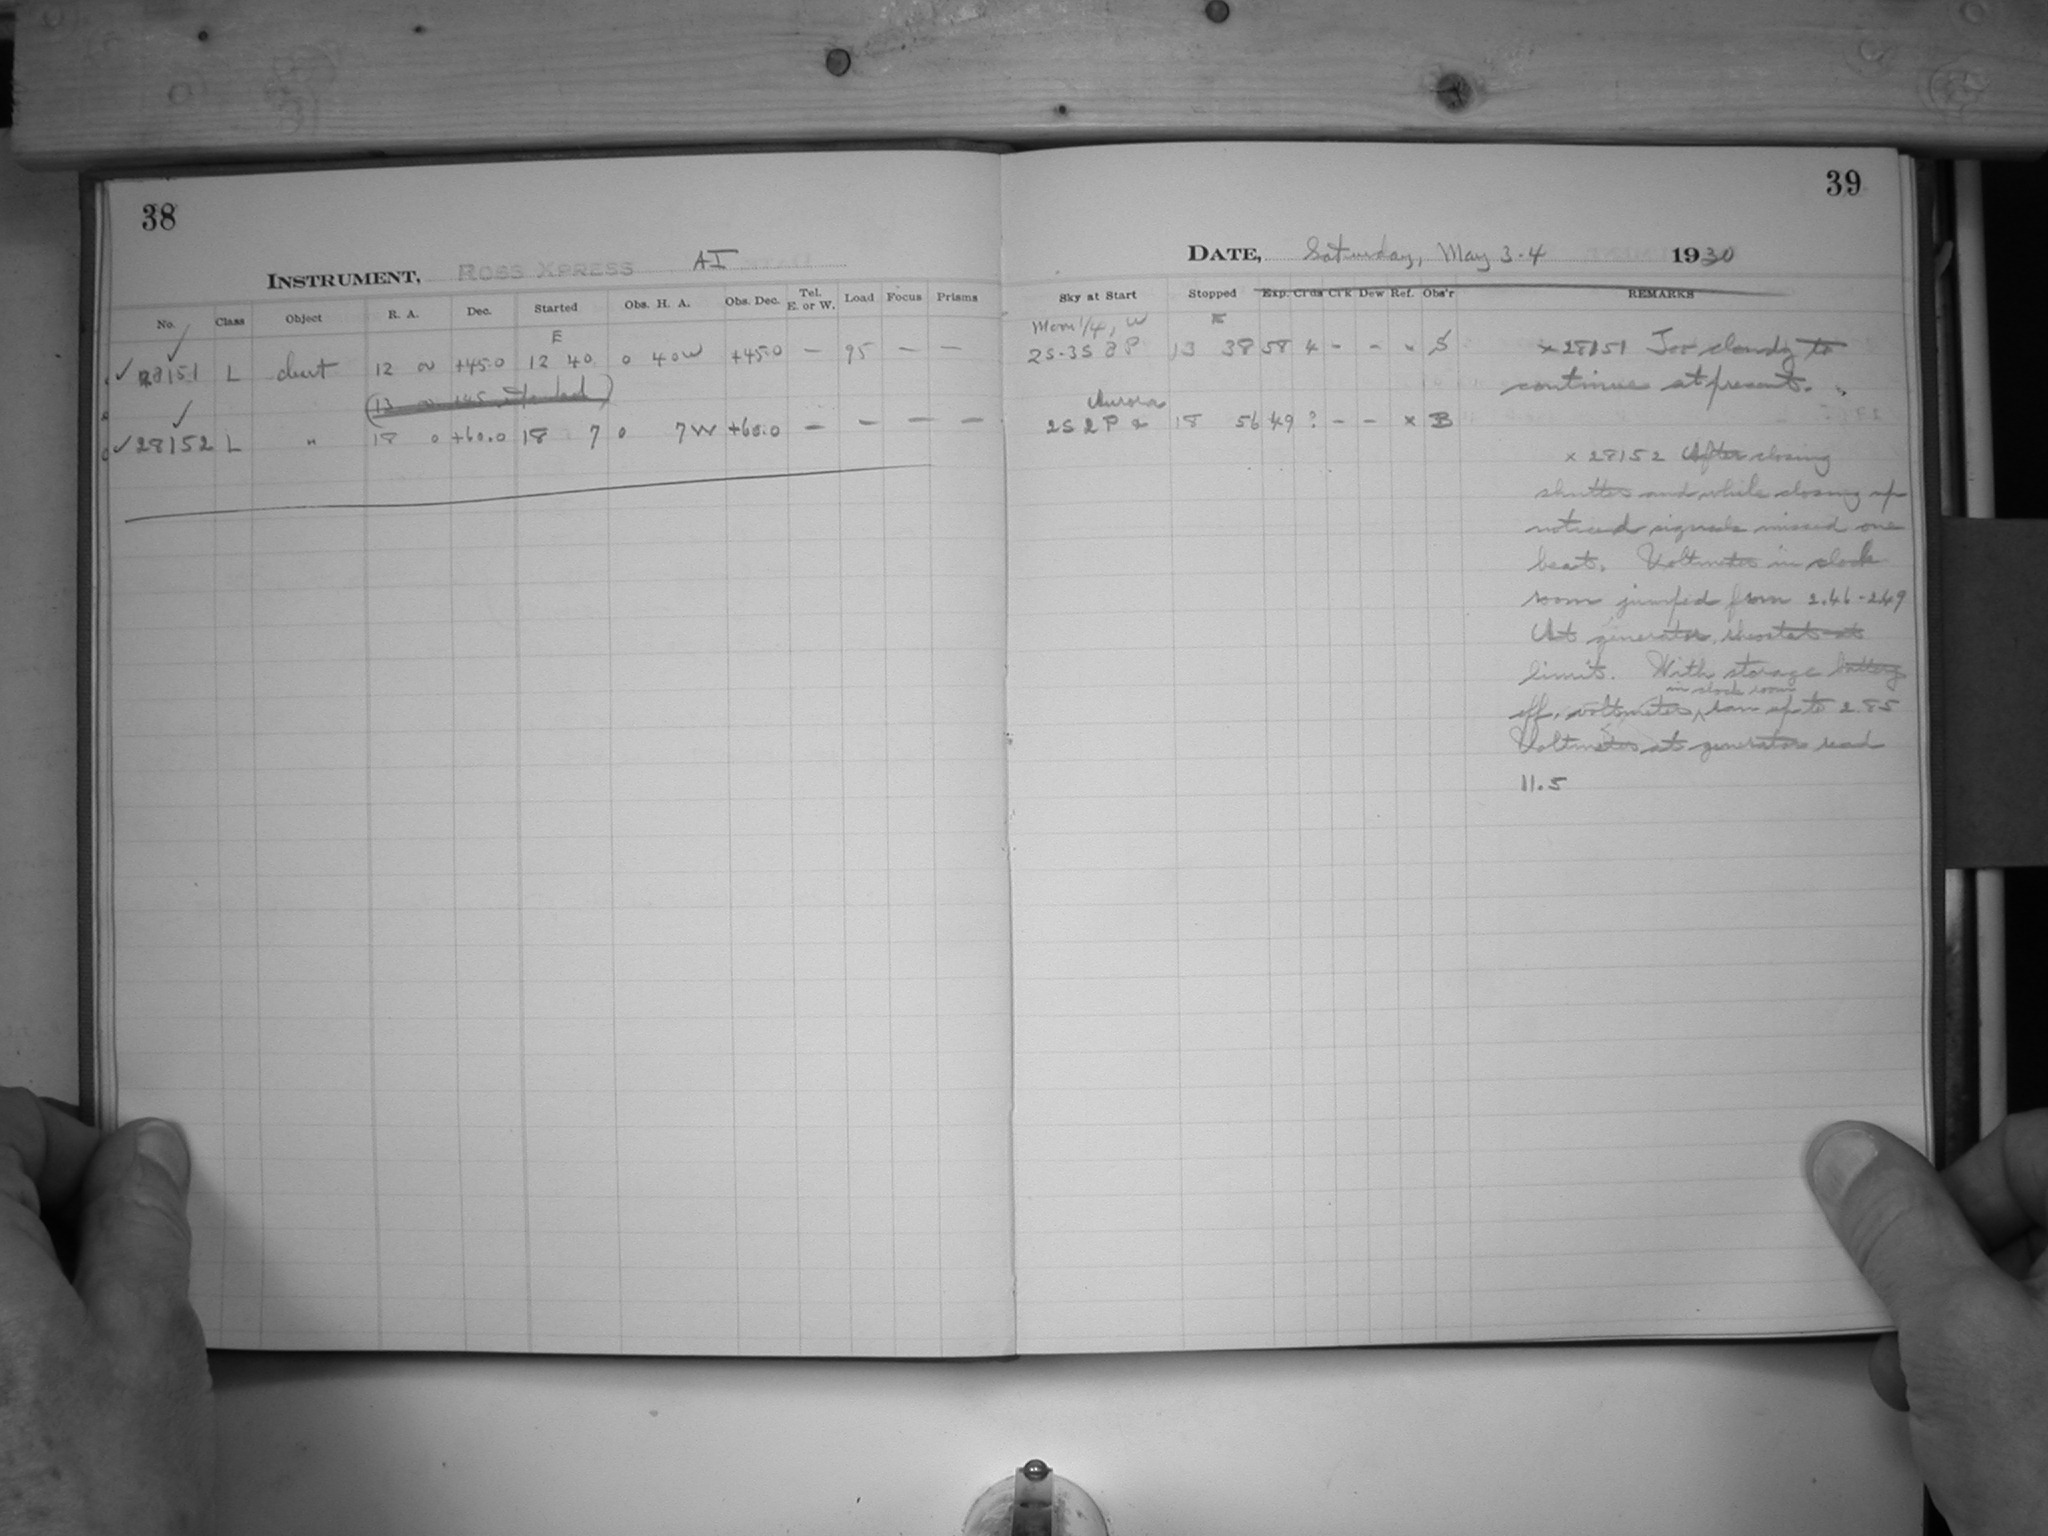 38
39
INSTRUMENT, ROSS XPRESS AI
DATE, Saturday, May 3-4 1930
No. Class Object R. A. Dec. Started Obs. H. A. Obs. Dec. Tel. E. or W. Load Focus Prisms
Sky at Start Stopped Exp. Cl'ds Cl'k Dew Ref. Obs'r REMARKS
E
Moon 1/4, W E
✓ 28151 L 12 0 +45.0 12 40 0 40 W +45.0 — 95 — —
2S-3S 3P 13 38 58 4 - - x S
x 28151 Too cloudy to
continue at present.
Aurora
✓ 28152 L " 18 0 +60.0 18 7 0 7 W +60.0 — — — —
2S 2P 18 56 49 ? - - x B
x 28152 After closing
shutter and while closing up
noticed signals missed one
beat. Voltmeter in clock
room jumped from 2.46-2.49
At generator, rheostat at
limit. With storage battery
off, voltmeter in clock room ran up to 2.85
Voltmeter at generator read
11.5